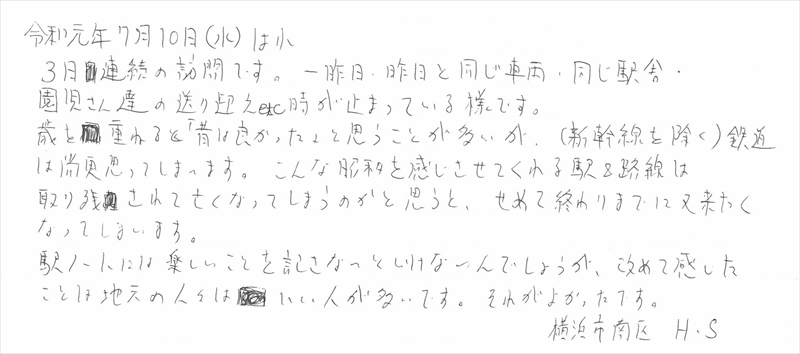 令和元年7月10日(水) はれ
3日連続の訪問です。一昨日・昨日と同じ車両・同じ駅舎・
園児さん達の送り迎えetc時が止まっている様です。
歳を重ねると「昔は良かった」と思うことが多いが、(新幹線を除く)鉄道
は尚更思ってしまいます。こんな昭和を感じさせてくれる駅&路線は
取り残されて亡くなってしまうのかと思うと、せめて終わりまでに又来たく
なってしまいます。
駅ノートには楽しいことを記さないといけないんでしょうが、改めて感じた
ことは地元の人々はいい人が多いです。それがよかったです。
横浜市南区 H・S